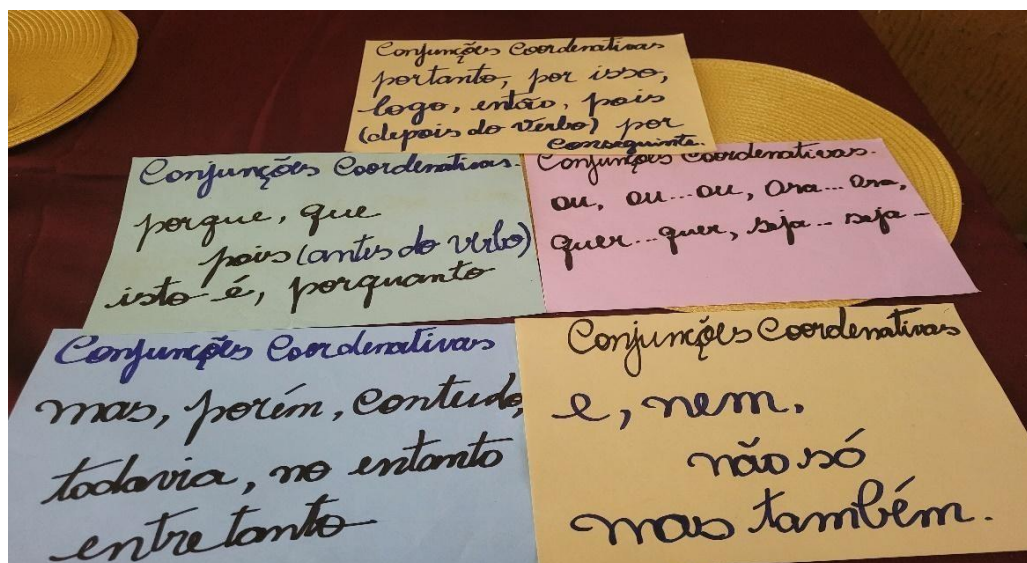 Conjunções Coordenativas
portanto, por isso,
logo, então, pois
(depois do verbo) por
conseguinte.
Conjunções Coordenativas.
porque, que
pois (antes do verbo)
isto é, porquanto
Conjunções Coordenativas.
ou, ou...ou, ora... ora,
quer...quer, seja... seja-
Conjunções Coordenativas
mas, porém, contudo,
todavia, no entanto
entretanto
Conjunções Coordenativas
e, nem,
não só
mas também.